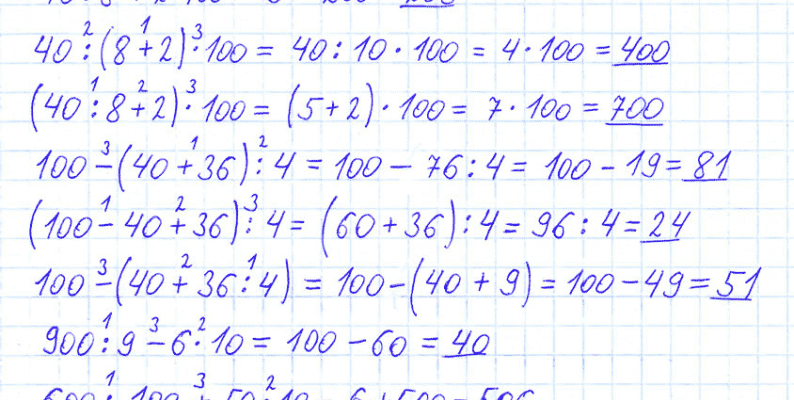 40 : (8 + 2) · 100 = 40 : 10 · 100 = 4 · 100 = 400
(40 : 8 + 2) · 100 = (5 + 2) · 100 = 7 · 100 = 700
100 − (40 + 36) : 4 = 100 − 76 : 4 = 100 − 19 = 81
(100 − 40 + 36) : 4 = (60 + 36) : 4 = 96 : 4 = 24
100 − (40 + 36 : 4) = 100 − (40 + 9) = 100 − 49 = 51
900 : 9 − 6 · 10 = 100 − 60 = 40